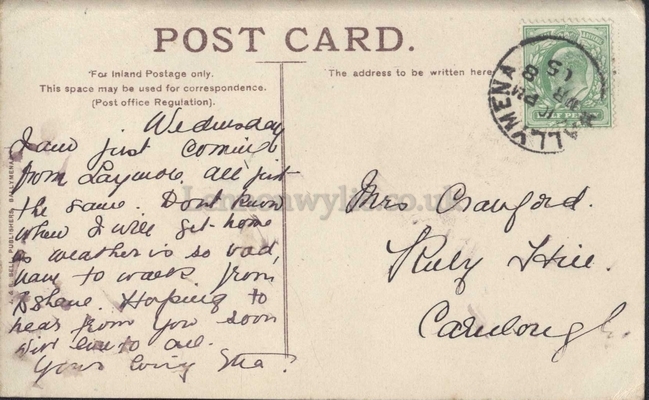 POST CARD.
For Inland Postage only.
This space may be used for correspondence.
(Post office Regulation).
The address to be written here
BALLYMENA
8 PM
AP
15
HALF PENNY
Wednesday
I am just coming
from Laymore all just
the same. Dont know
when I will get home
as weather is so bad,
have to walk from
Hoping to
hear from you soon
with love to all.
Yours loving
Mrs Crawford.
Ruby Hill.
Carnlough.
J. & S. BELL, PUBLISHERS, BALLYMENA
Lamonwylie.co.uk